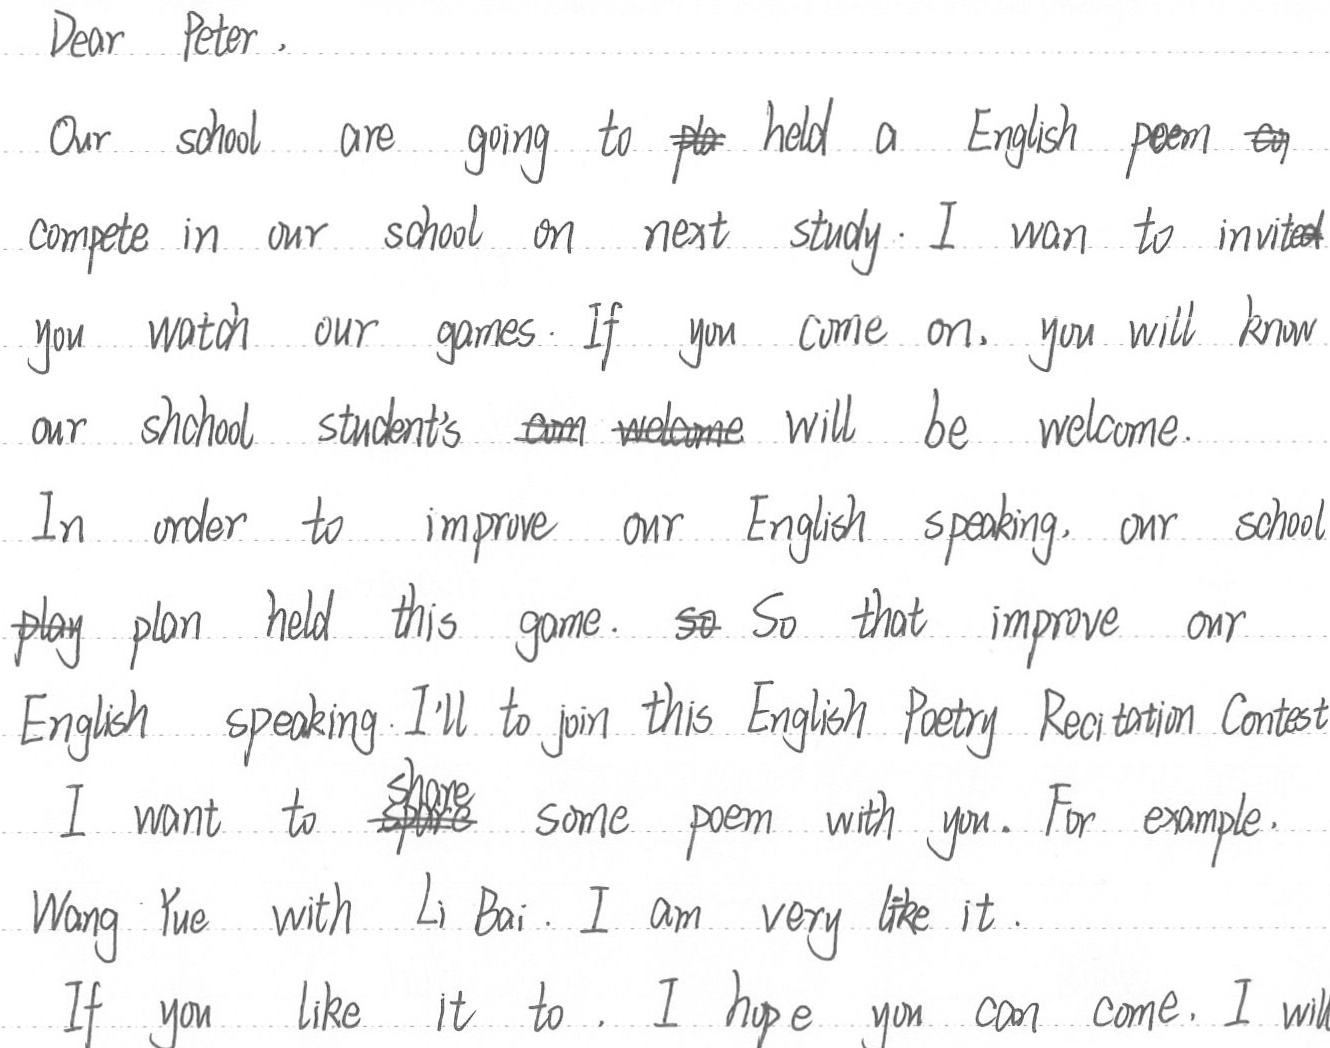 Dear Peter,
Our school are going to held a English poem
compete in our school on next study. I wan to invite
you watch our games. If you come on, you will know
our shchool student's will be welcome.
In order to improve our English speaking, our school
plan held this game. So that improve our
English speaking. I'll to join this English Poetry Recitation Contest
I want to share some poem with you. For example.
Wang Yue with Li Bai. I am very like it.
If you like it to, I hope you can come. I will